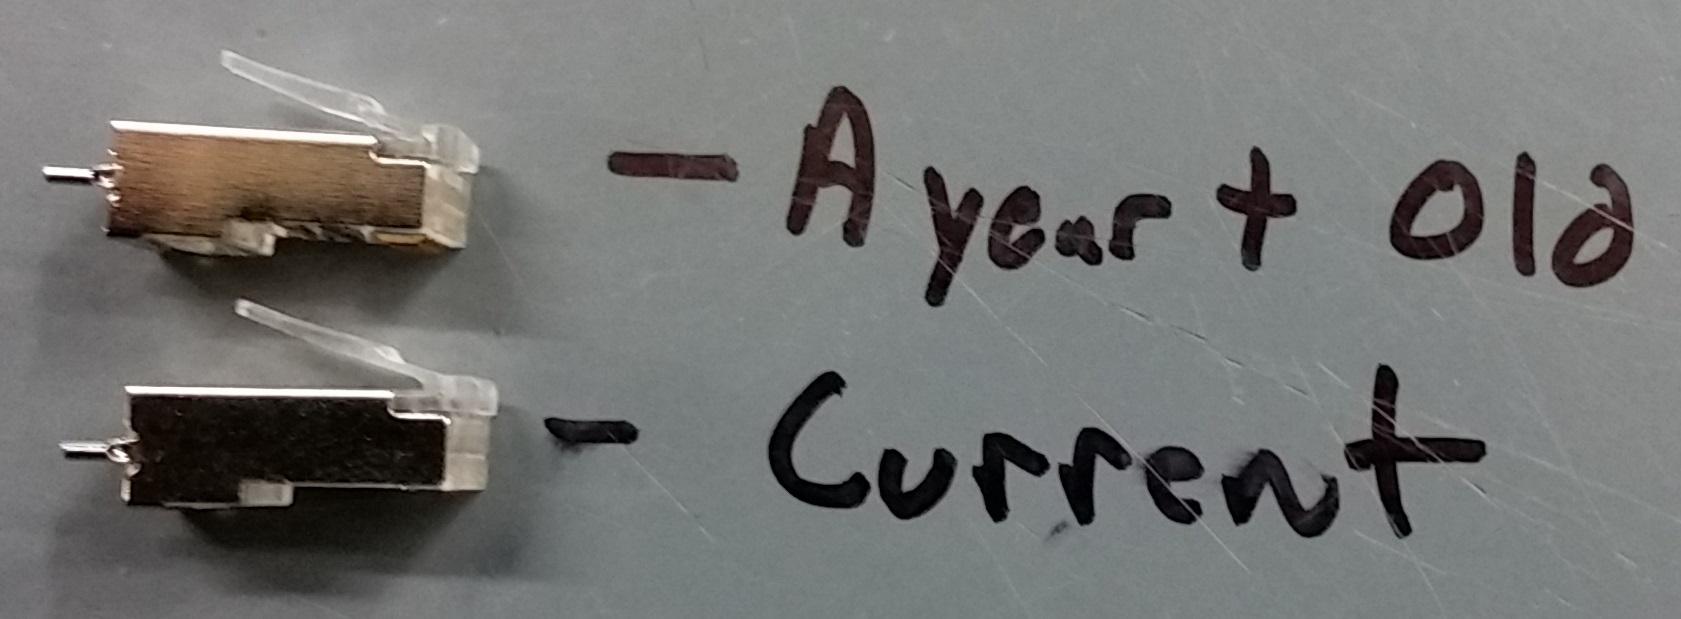 - A year + old
- Current